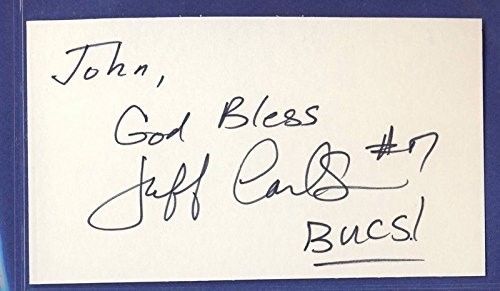 John,
God Bless
Jeff Carlson #7
BUCS!